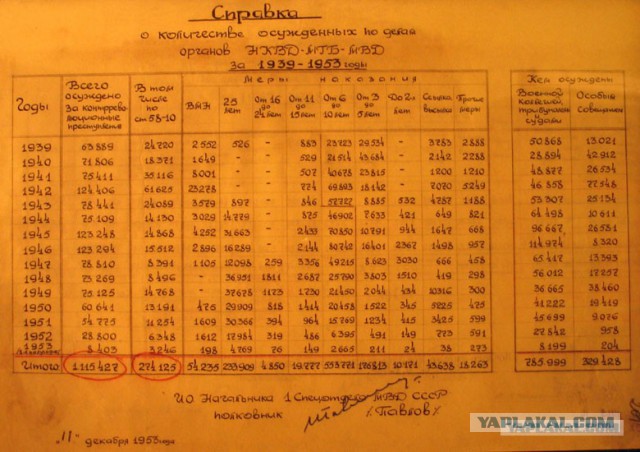 Справка
о количестве осужденных по делам
органов НКВД-МГБ-МВД
за 1939-1953 годы
Годы Всего осуждено за контрреволюционные преступления В том числе по ст 58-10 Меры наказания Кем осуждены
ВМН 25 лет От 16 до 24 лет От 11 до 15 лет От 6 до 10 лет От 3 до 5 лет До 2х лет Ссылка высылка Прочие меры Военной коллегией, трибуналами судами Особым Совещанием
1939 63889 24720 2552 526 - 883 23723 29534 - 3783 2888 50868 13.021
1940 71.806 18.371 1649 - - 529 21514 43684 - 2142 2288 28.894 42.912
1941 75411 35116 8001 - - 507 40678 23815 - 1200 1210 48.877 26.534
1942 124.406 61.625 23278 - - 774 69893 18142 - 7070 5249 46.858 77.548
1943 78.441 24089 3579 897 - 846 8885 532 4787 1188 53.307 25.134
1944 75.109 14.130 3029 14.779 - 875 46902 7633 421 649 821 64.498 10.611
1945 123.248 14.868 4252 31.663 - 2433 70850 10791 944 1647 668 96.667 26.581
1946 123.294 15.512 2896 16289 - 2144 80742 16401 2367 1498 957 114.974 8.320
1947 78.810 8.391 1105 12098 259 3356 49215 8.623 3030 666 458 65.417 13.393
1948 73.269 8.496 - 36.951 1811 2687 25790 3803 1510 419 298 56.012 17.257
1949 75.125 14.768 - 37678 1173 1730 21450 2044 434 10316 300 36.665 38.460
1950 60.641 13.191 475 29909 818 1414 20458 1522 345 5225 475 41.222 19.419
1951 54.775 11.254 1609 30.366 394 964 15769 1234 415 3425 599 45.699 9.076
1952 28.800 6.348 1612 17.984 319 486 6395 491 149 773 591 27.842 958
1953 8.403 3246 198 4769 76 149 2665 211 24 38 273 8.199 204
Итого 1.115.427 274.125 54.235 233909 4.850 19.777 10171 43638 18263 785.999 329.428
ИО Начальника 1 Спецотдела МВД СССР
полковник /Павлов/
"11" декабря 1953 года
YAPLAKAL.COM
YAPLAKAL.COM